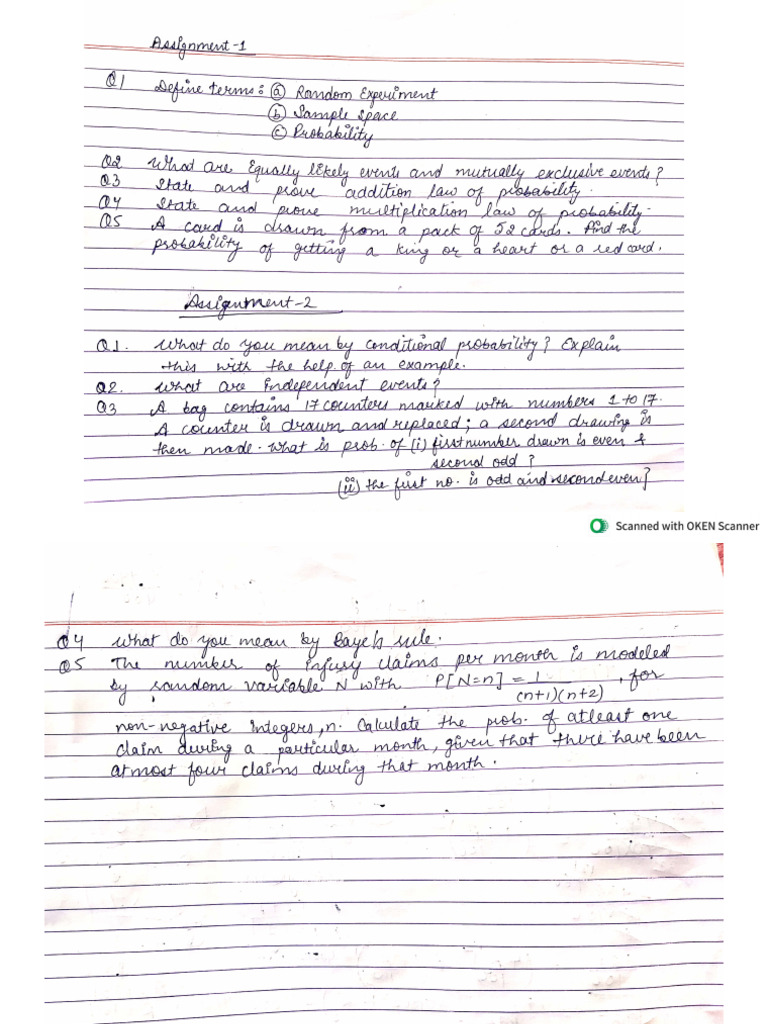 Assignment-1
Q1 Define terms: (a) Random Experiment
(b) Sample Space
(c) Probability
Q2 What are Equally likely events and mutually exclusive events?
Q3 State and prove addition law of probability.
Q4 State and prove multiplication law of probability.
Q5 A card is drawn from a pack of 52 cards. Find the
probability of getting a king or a heart or a red card.
Assignment-2
Q1. What do you mean by Conditional probability? Explain
this with the help of an example.
Q2. What are independent events?
Q3 A bag contains 17 counters marked with numbers 1 to 17.
A counter is drawn and replaced; a second drawing is
then made. What is prob. of (i) first number drawn is even &
second odd?
(ii) the first no. is odd and second even?
Scanned with OKEN Scanner
Q4 What do you mean by Baye's rule.
Q5 The number of injury claims per month is modeled
by random variable N with P[N=n] = 1/(n+1)(n+2), for
non-negative integers, n. Calculate the prob. of atleast one
claim during a particular month, given that there have been
atmost four claims during that month.